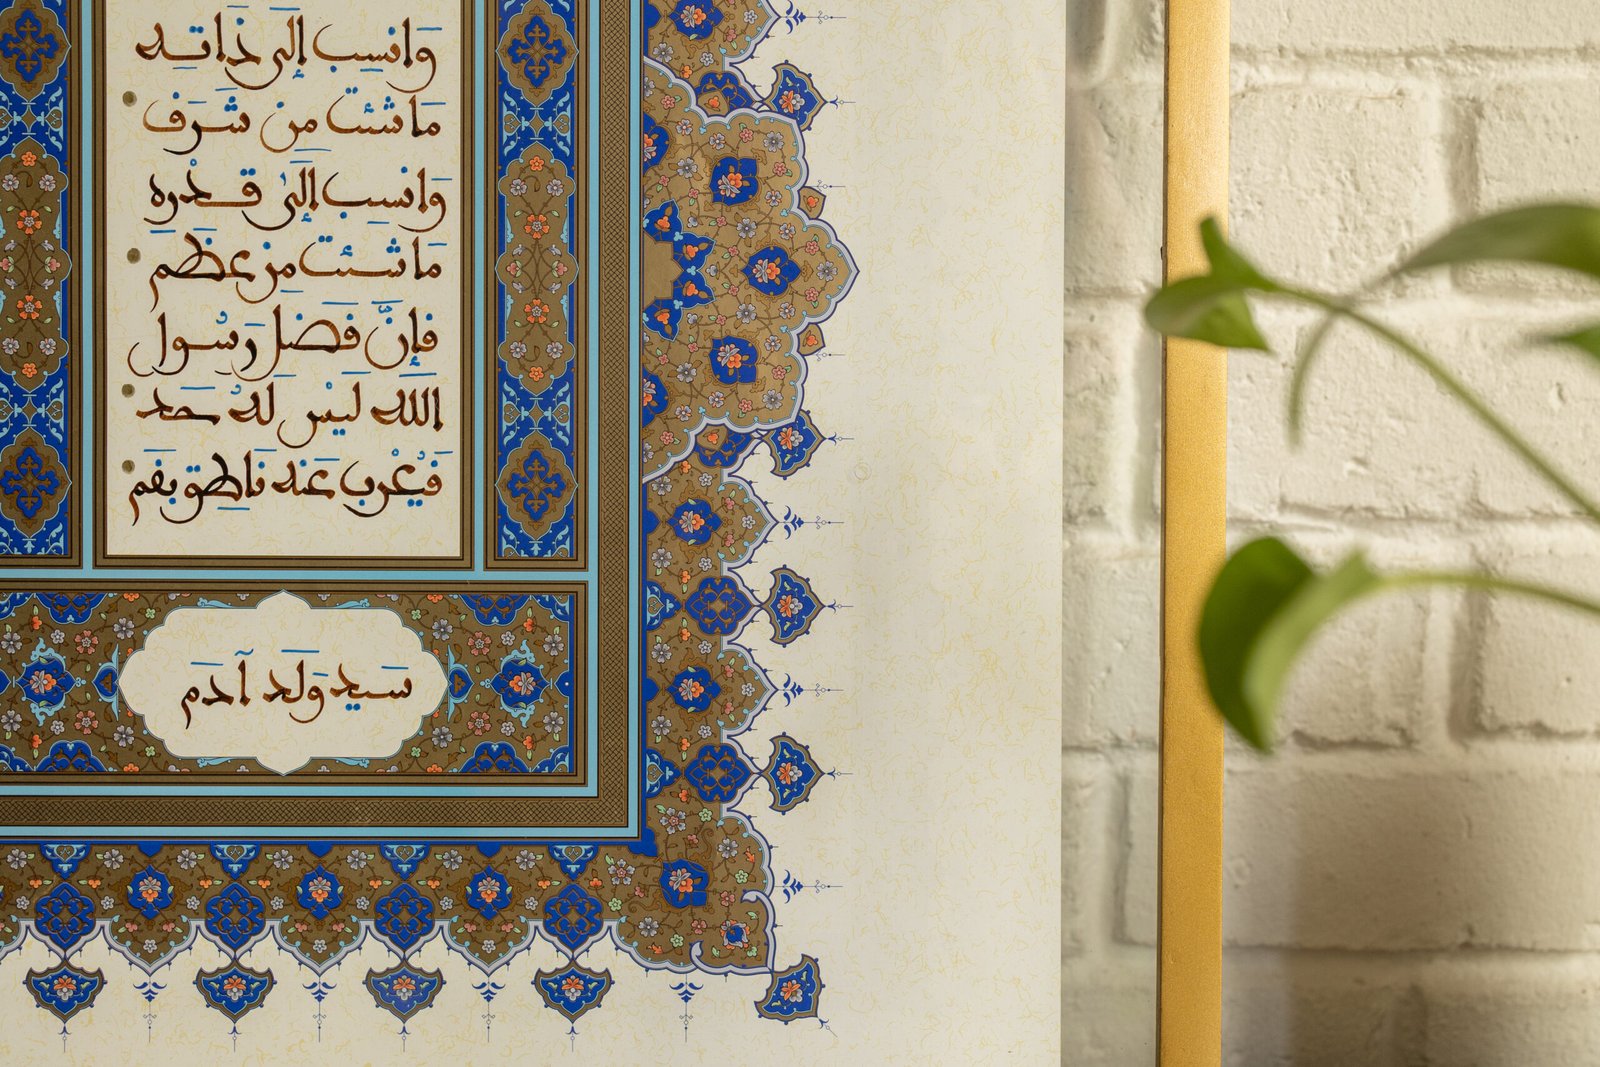 وَانسِب إِلَى ذَاتِه
مَا شِئتَ مِن شَرَف
وَانسِب إِلَىٰ قَدْرِه
مَا شِئتَ مِن عِظَم
فَإِنَّ فَضلَ رَسُول
اللَه لَيسَ لَهُ حَد
فَيُعْرِب عَنه نَاطِق بِفَم
سَيِد وَلَد آدَم